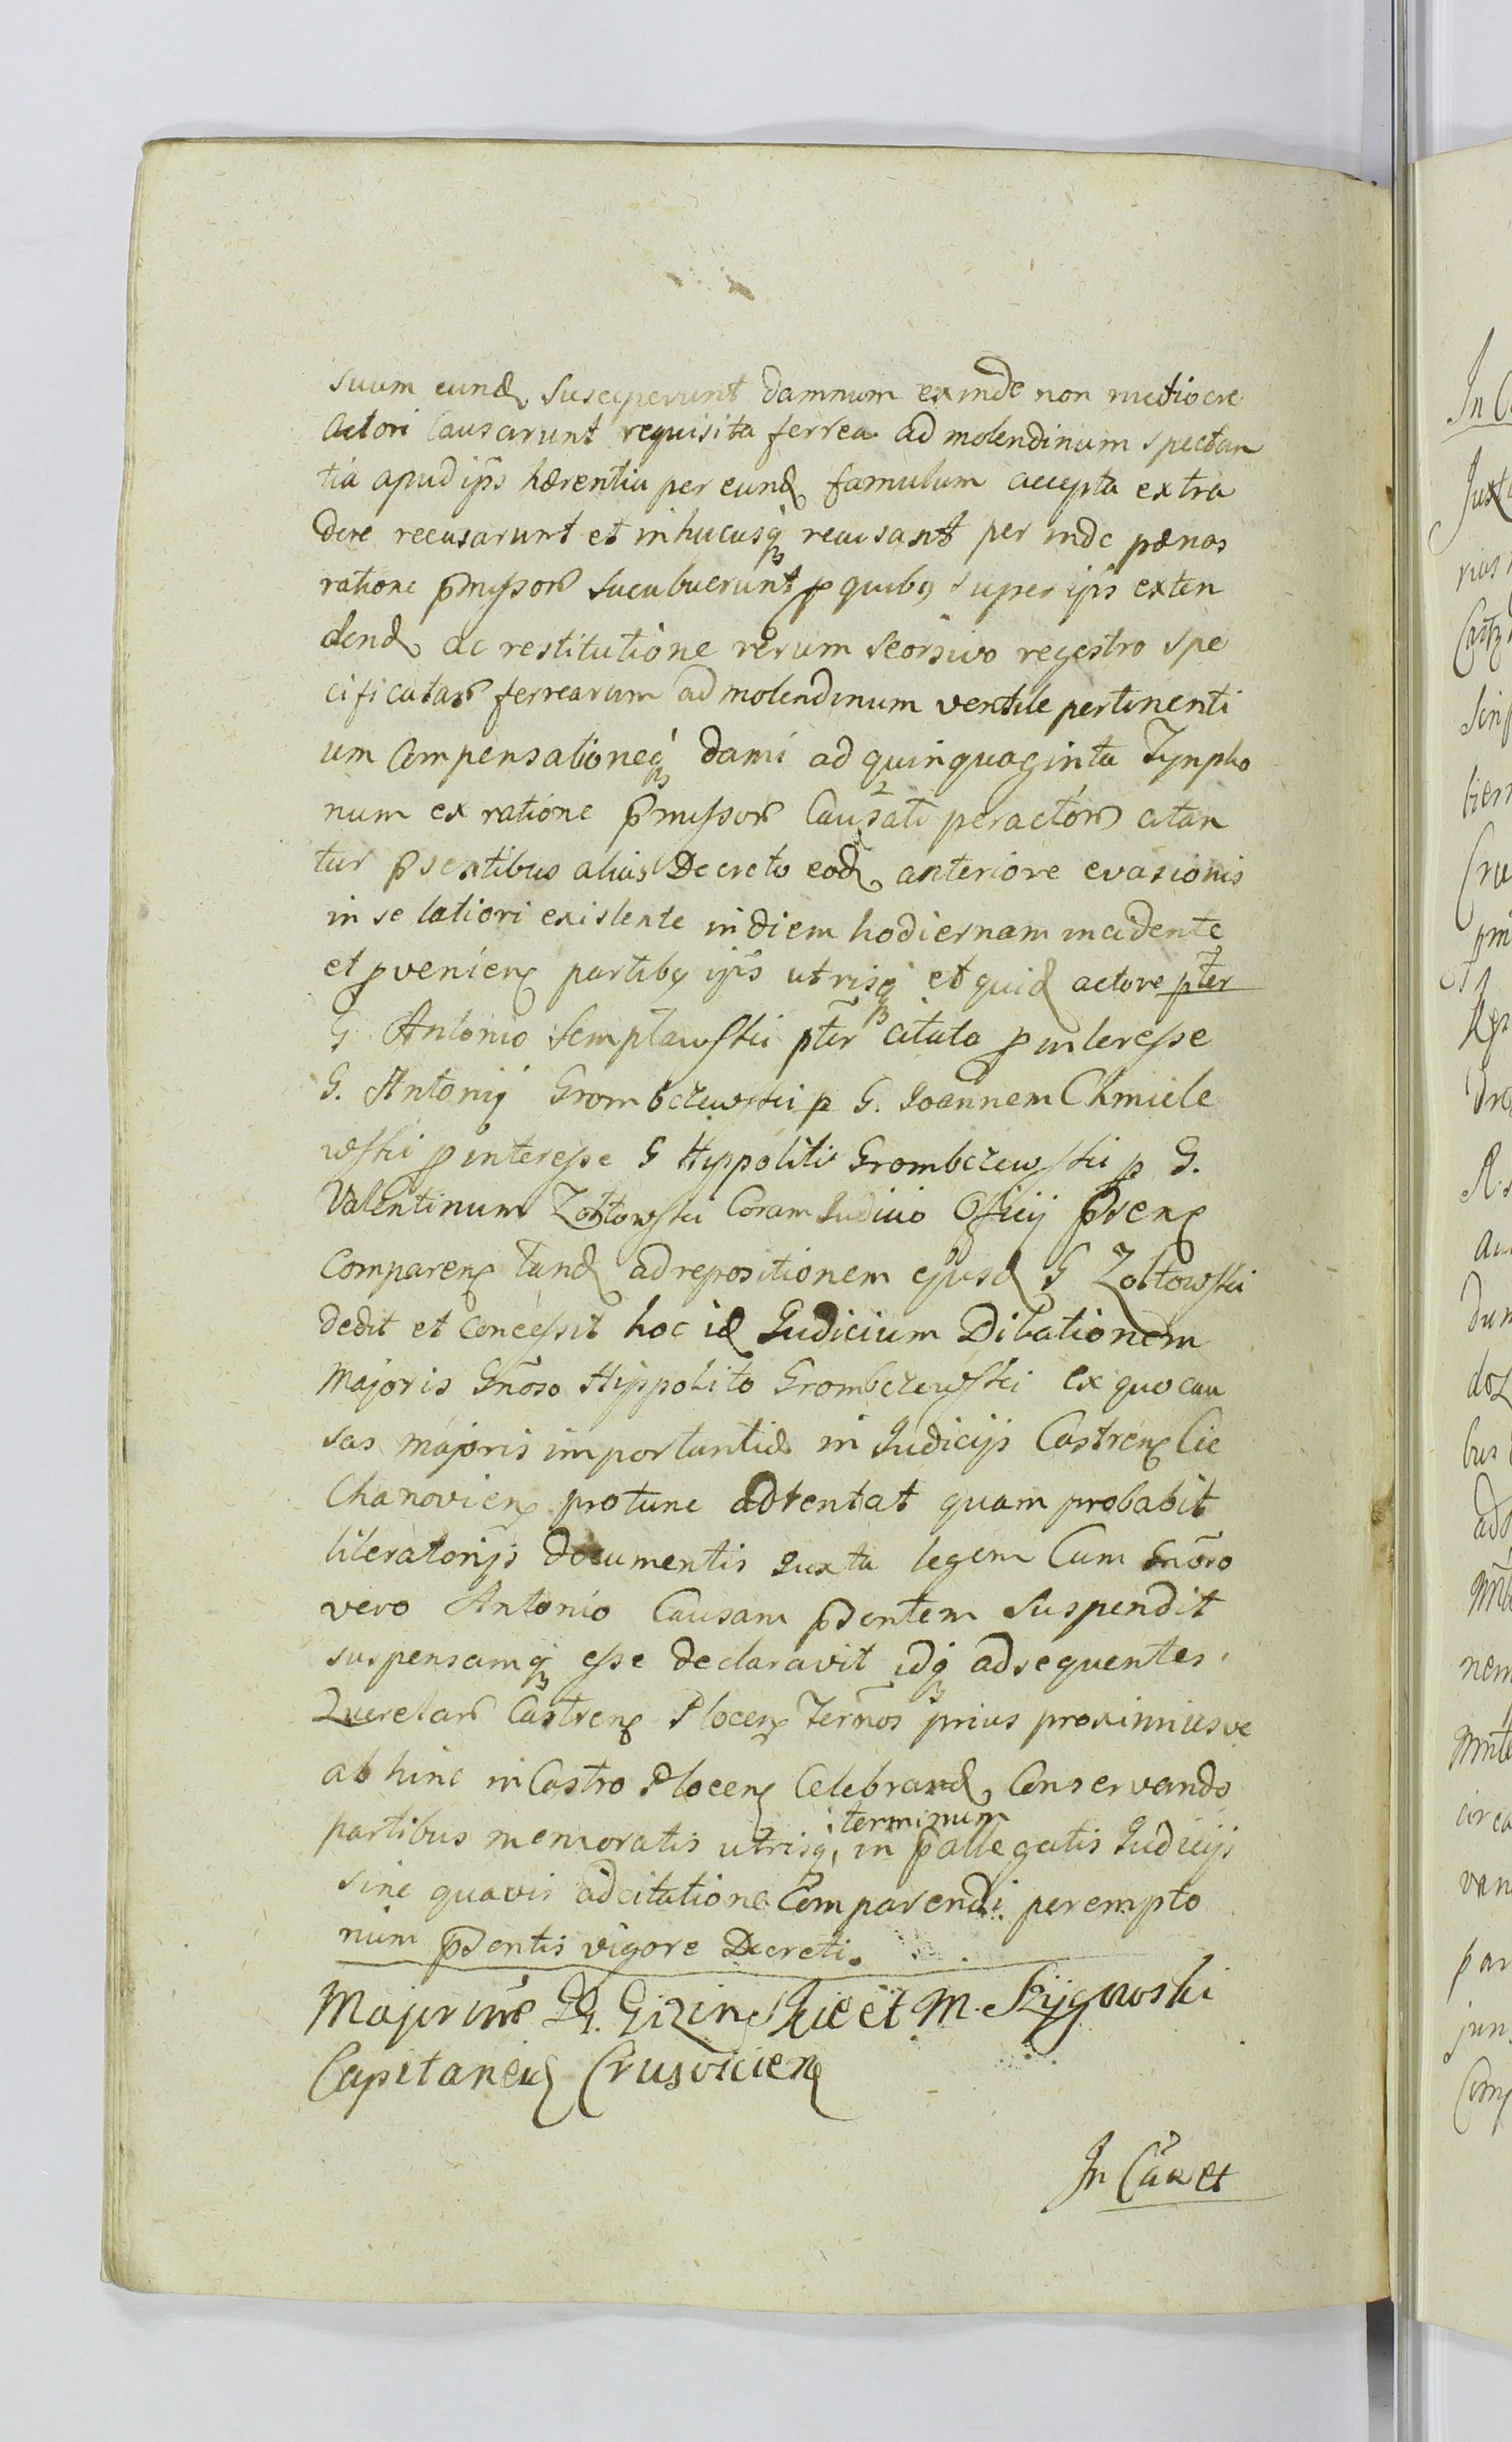 suum eund susceperunt damnum exinde non mediocre
actori causarunt requisita ferrea ad molendinum spectan
tia apud ips hærentia per eund famulum accepta extra
dere recusarunt et in hucusq recusant per inde pænas
ratione pmissor sucubuerunt p quibq super ips exten
dend ac restitutione rerum seorsivo regestro spe
cificatar ferrearum ad molendinum ventile pertinenti
um compensationeq dami ad quinquaginta Tynpho
num ex ratione pmissor causati peractor citan
tur psentibus alias Decreto eod anteriore evasionis
in se latiori existente in diem hodiernam incidente
et pvenien partibq ips utrisq et quid actore pter
G. Antonio Semptawski pter citato p interesse
G. Antonij Grombczewski p G. Joannem Chmiele
wski p interesse G Hyppoliti Grombczewski p G.
Valentinum Zołtowski Coram Judicio Officij pren
comparen tand ad repositionem ejusd G Zołtowski
dedit et concessit hoc id Judicium Dilationem
Majoris Gnoso Hippolito Grombczewski ex quo cau
sas majoris importantiæ in Judicijs Castren Cie
chanovien protunc adtentat quam probabit
literatorijs documentis juxta legem Cum Gnoso
vero Antonio Causam psentem suspendit
suspensamq esse declaravit idq ad sequentes
Querelar Castren Plocen Termos prius proximiusve
ab hinc in Castro Plocen Celebrand Conservando
terminum
partibus memoratis utrisq, in pallegatis Judicijs
sine quavis adcitatione Comparendi perempto
rium psentis vigore Decreti.
Major inte GG. Gizinskie et M. Szygowski
Capitaneu Crusvicien
In Cau et
In C
Juxt
rius